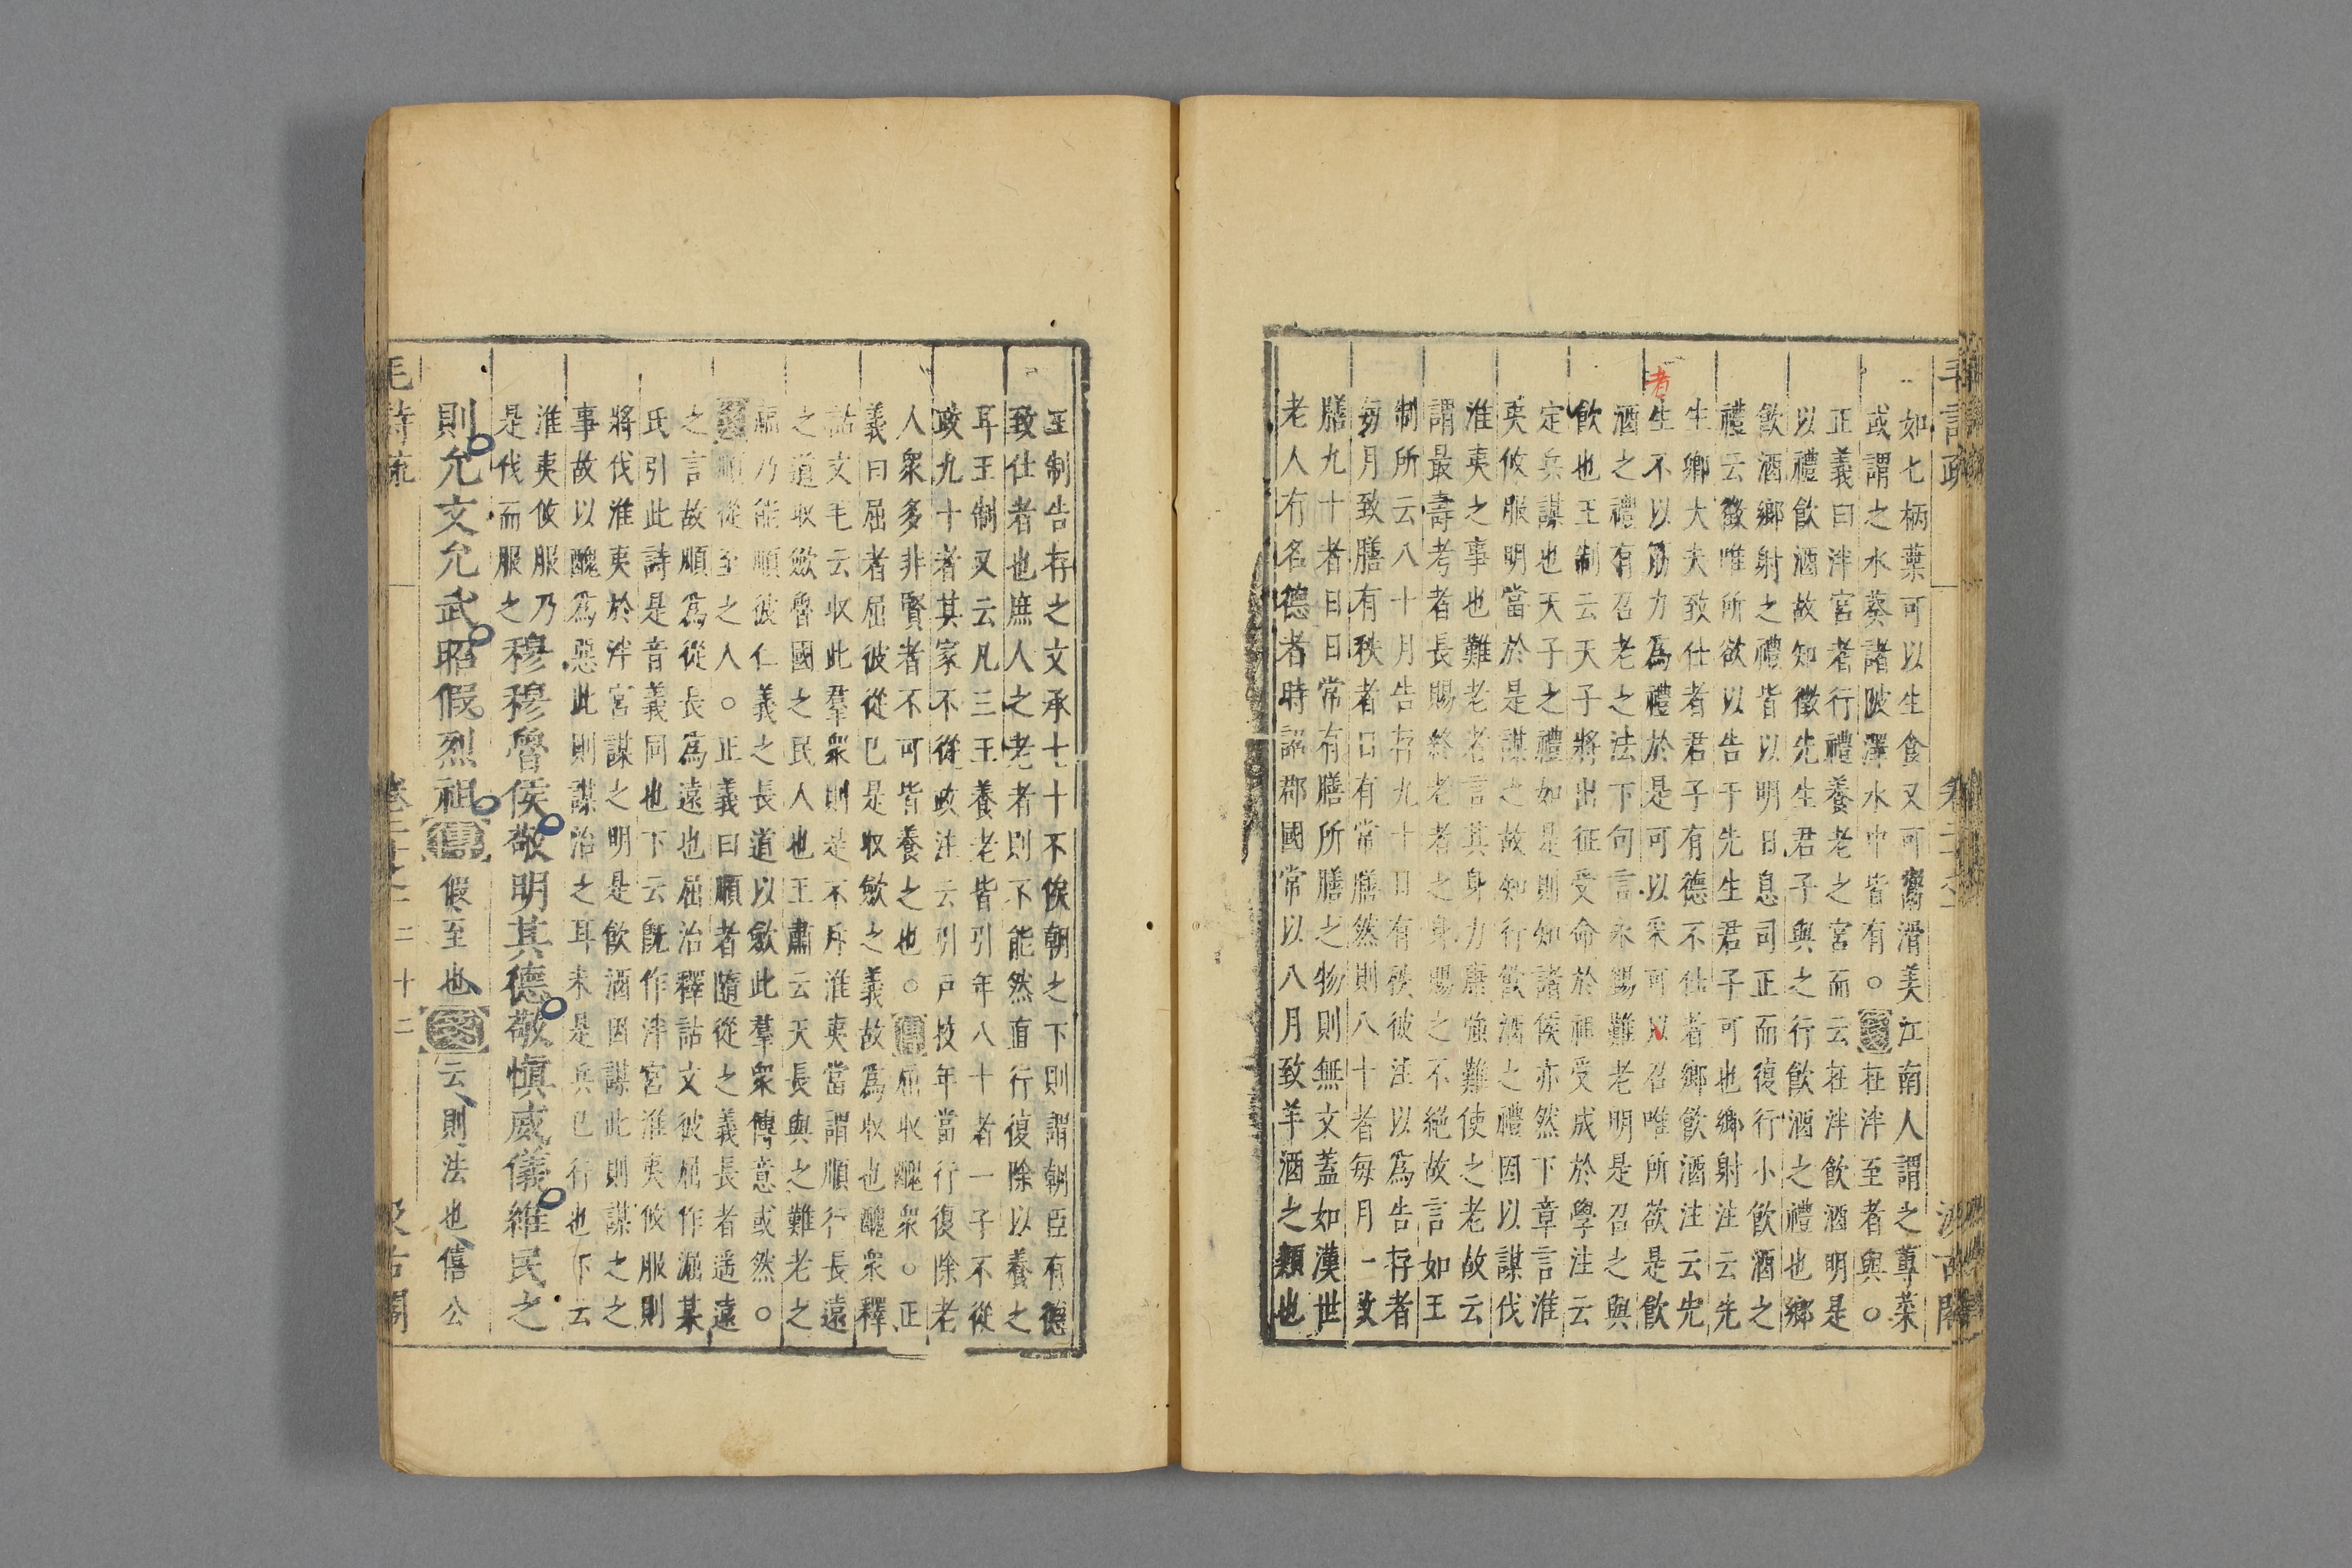 毛詩疏
卷二十之一
汲古閣
如七柄葉可以生食又可鬻滑美江南人謂之蓴菜
或謂之水葵諸陂澤水中皆有○疏在泮至者與○
正義曰泮宮者行禮養老之宮而云在泮飲酒明是
以禮飲酒故知徵先生君子與之行飲酒之禮也鄉
飲酒鄉射之禮皆以明日息司正而復行小飲酒之
禮云徵唯所欲以告于先生君子可也鄉射注云先
生鄉大夫致仕者君子有德不仕者鄉飲酒注云先
生不以筋力為禮於是可以來可以召唯所欲是飲
者
酒之禮有召老之法下句言永賜難老明是召之與
飲也王制云天子將出征受命於祖受成於學注云
定兵謀也天子之禮如是則知諸侯亦然下章言淮
夷攸服明當於是謀之故知行飲酒之禮因以謀伐
淮夷之事也難老者言其身力康強難使之老故云
謂最壽考者長賜終老者之身賜之不絕故言如王
制所云八十月告存九十日有秩彼注以為告存者
每月致膳有秩者日有常膳然則八十者每月一致
膳九十者日日常有膳所膳之物則無文蓋如漢世
老人有名德者時詔郡國常以八月致羊酒之類也
王制告存之文承七十不俟朝之下則謂朝臣有德
致仕者也庶人之老者則不能然直行復除以養之
耳王制又云凡三王養老皆引年八十者一子不從
政九十者其家不從政注云引戶校年當行復除老
人眾多非賢者不可皆養之也○傳屈收醜眾○正
義曰屈者屈彼從已是收斂之義故為收也醜眾釋
詁文毛云收此羣眾則是不斥淮夷當謂順行長遠
之道收斂魯國之民人也王肅云天長與之難老之
福乃能順彼仁義之長道以斂此羣眾傳意或然○
箋順從至之人○正義曰順者隨從之義長者遙遠
之言故順為從長為遠也屈治釋詁文彼屈作淈某
氏引此詩是音義同也下云旣作泮宮淮夷攸服則
將伐淮夷於泮宮謀之明是飲酒因謀此則謀之之
事故以醜為惡此則謀治之耳未是兵已行也下云
淮夷攸服乃
是伐而服之
穆穆魯侯敬明其德敬慎威儀維民之
則允文允武昭假烈祖傳假至也箋云則法也僖公
毛詩疏
卷二十之一
二十二
汲古閣